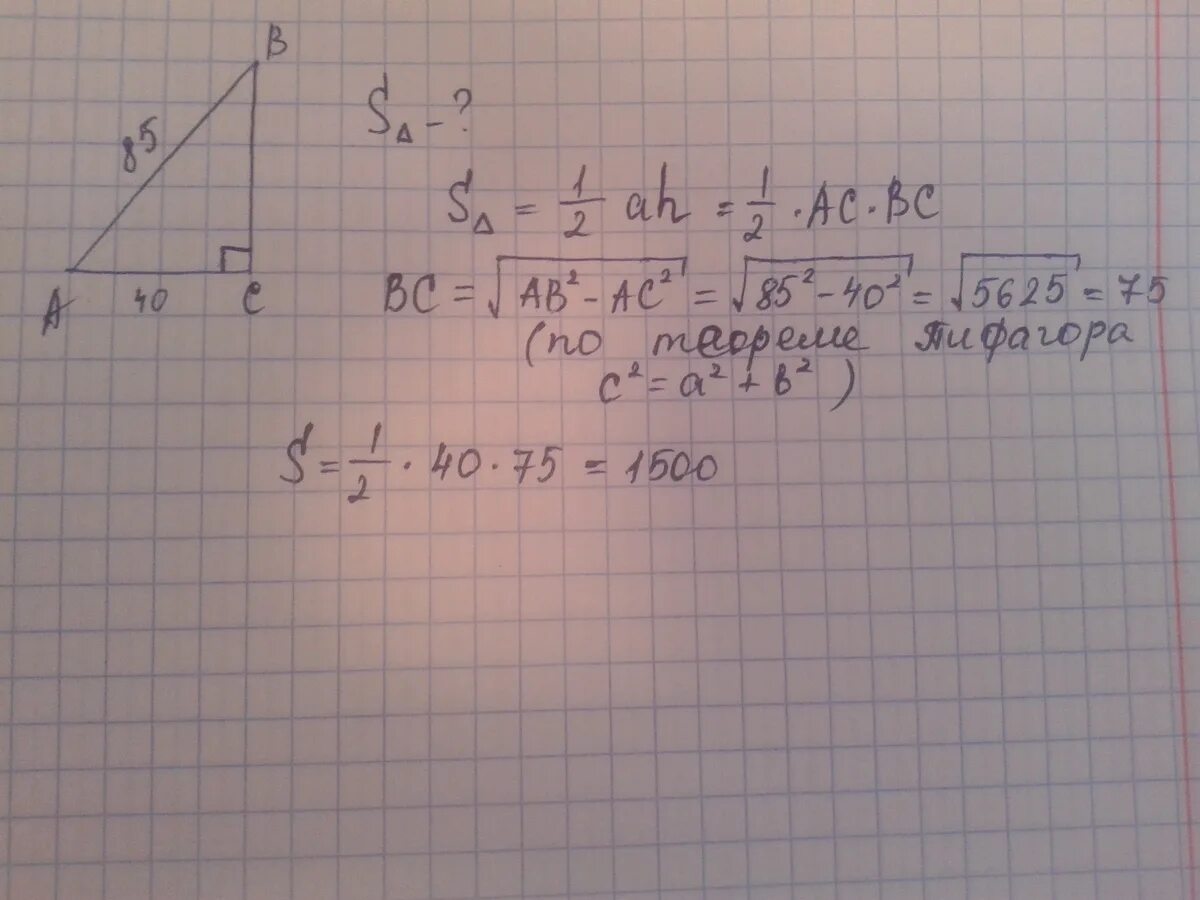 B
85
A 40 C
S△ - ?
S△ = 1/2 ah = 1/2 · AC · BC
BC = √(AB² - AC²) = √(85² - 40²) = √5625 = 75
(по теореме Пифагора
c² = a² + b²)
S = 1/2 · 40 · 75 = 1500